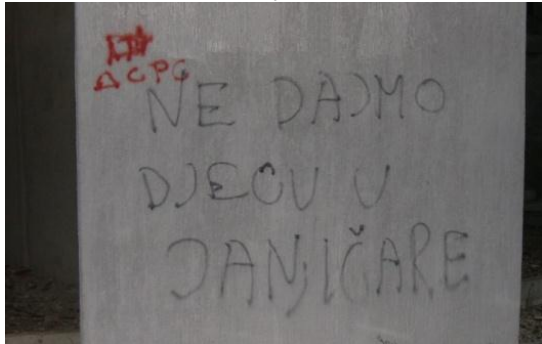 ACPG
NE DAJMO
DJECU U
JANJIČARE